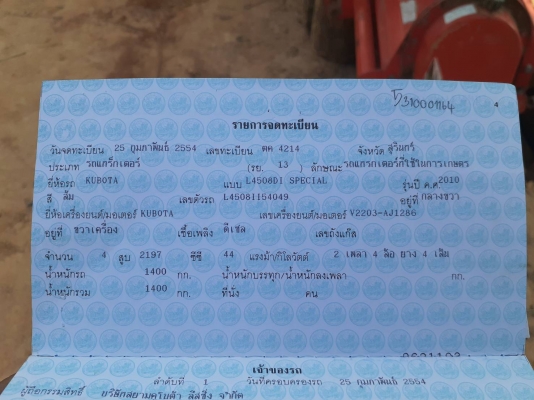 ร310001164
4
รายการจดทะเบียน
วันจดทะเบียน 25 กุมภาพันธ์ 2554 เลขทะเบียน ตค 4214 จังหวัด สุรินทร์
ประเภท รถแทร็กเตอร์ (รย. 13 ) ลักษณะ รถแทรกเตอร์ที่ใช้ในการเกษตร
ยี่ห้อรถ KUBOTA แบบ L4508DI SPECIAL รุ่นปี ค.ศ. 2010
สี ส้ม เลขตัวรถ L45081154049 อยู่ที่ กลางขวา
ยี่ห้อเครื่องยนต์/มอเตอร์ KUBOTA เลขเครื่องยนต์/มอเตอร์ V2203-AJ1286
อยู่ที่ ขวาเครื่อง เชื้อเพลิง ดีเซล เลขถังแก๊ส
จำนวน 4 สูบ 2197 ซีซี 44 แรงม้า/กิโลวัตต์ 2 เพลา 4 ล้อ ยาง 4 เส้น
น้ำหนักรถ 1400 กก. น้ำหนักบรรทุก/น้ำหนักลงเพลา กก.
น้ำหนักรวม 1400 กก. ที่นั่ง คน
เจ้าของรถ
ลำดับที่ 1 วันที่ครอบครองรถ 25 กุมภาพันธ์ 2554
ผู้ถือกรรมสิทธิ์ บริษัทสยามคูโบต้า ลีสซิ่ง จำกัด